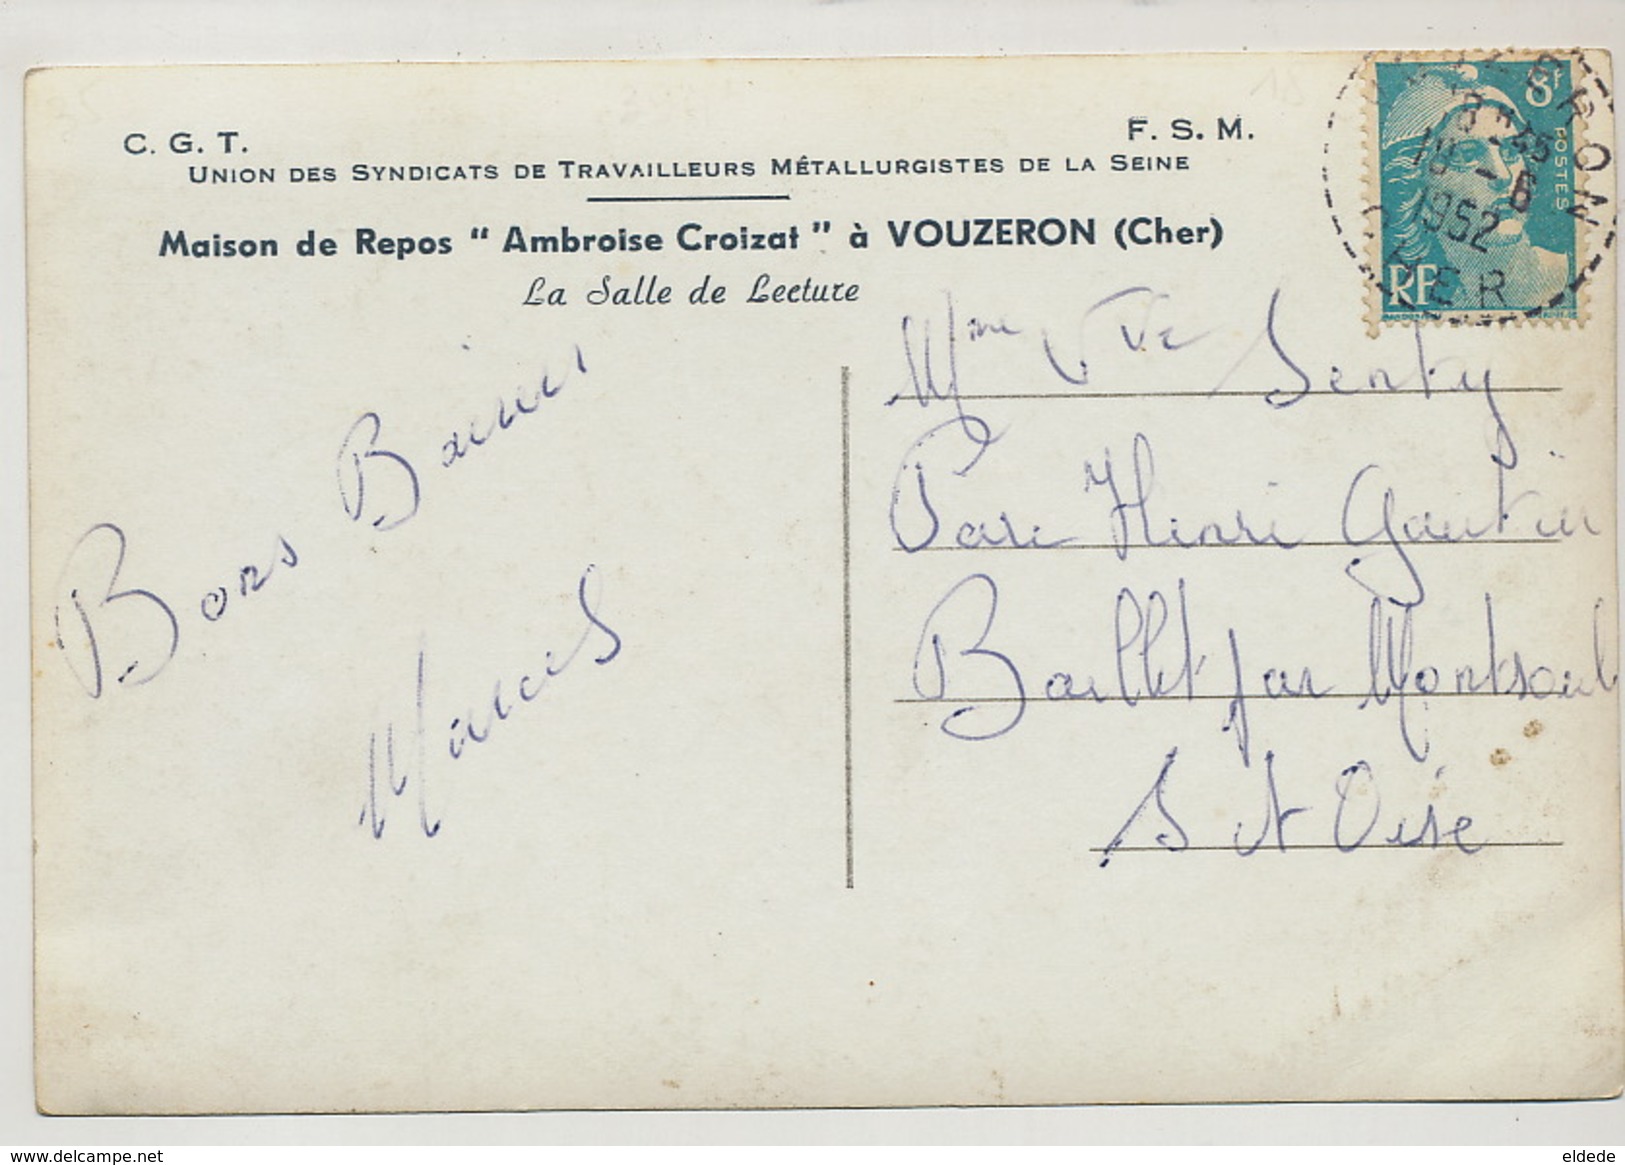 C. G. T.
F. S. M.
UNION DES SYNDICATS DE TRAVAILLEURS MÉTALLURGISTES DE LA SEINE
Maison de Repos " Ambroise Croizat " à VOUZERON (Cher)
La Salle de Lecture
8f
POSTES
RF
VOUZERON
18 - 6
1952
CHER
Mme Vve Senty
Bons Baisers
Marcel
Henri
Baillet par Montsoult
S et Oise
www.delcampe.net
eldede